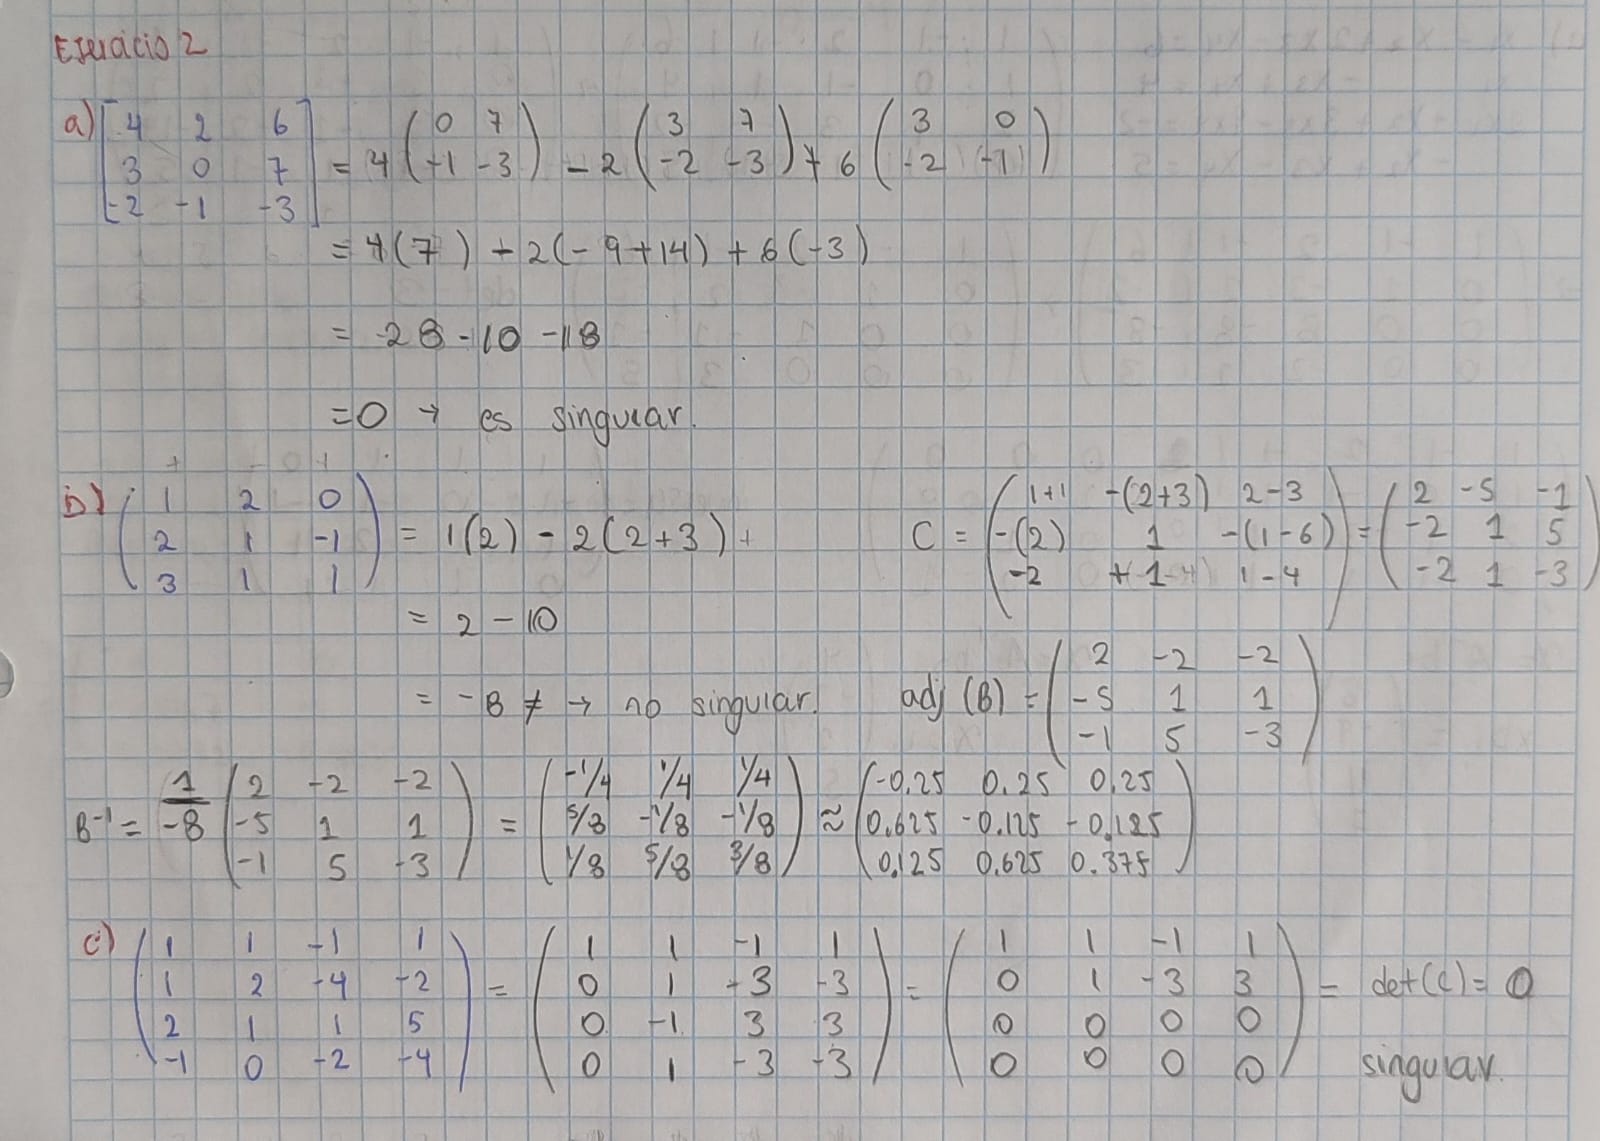 Ejercicio 2
a) [4 2 6; 3 0 7; -2 -1 -3] = 4 (0 7; -1 -3) - 2 (3 7; -2 -3) + 6 (3 0; -2 -1)
= 4(7) - 2(-9+14) + 6(-3)
= 28 - 10 - 18
= 0 → es singular.
b) (1 2 0; 2 1 -1; 3 1 1) = 1(2) - 2(2+3) +
= 2 - 10
= -8 ≠ → no singular.
C = (1+1 -(2+3) 2-3; -(2) 1 -(1-6); -2 +1 1-4) = (2 -5 -1; -2 1 5; -2 1 -3)
adj (B) = (2 -2 -2; -5 1 1; -1 5 -3)
B⁻¹ = 1/-8 (2 -2 -2; -5 1 1; -1 5 -3) = (-1/4 1/4 1/4; 5/8 -1/8 -1/8; 1/8 5/8 3/8) ≈ (-0.25 0.25 0.25; 0.625 -0.125 -0.125; 0.125 0.625 0.375)
c) (1 1 -1 1; 1 2 -4 -2; 2 1 1 5; -1 0 -2 -4) = (1 1 -1 1; 0 1 -3 -3; 0 -1 3 3; 0 1 -3 -3) = (1 1 -1 1; 0 1 -3 3; 0 0 0 0; 0 0 0 0) = det(C) = 0
singular.